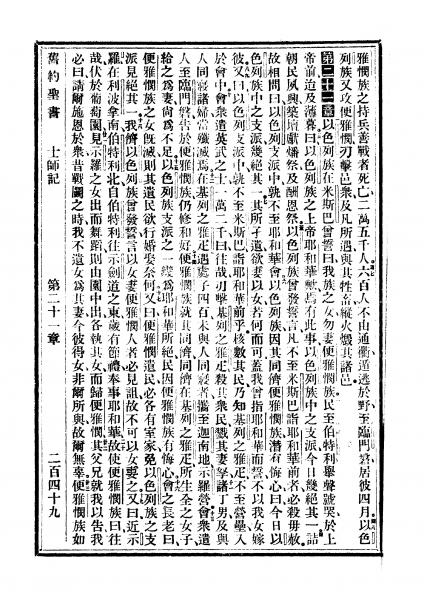 雅憫族之持兵善戰者死亡二萬五千人六百人不由通衢遁逃於野至臨門磐居彼四月以色
列族又攻便雅憫刃擊邑衆及凡所遇與其牲畜縱火燬其諸邑
第二十一章以色列族在米斯巴曾誓曰我族之女勿妻便雅憫族民至伯特利舉聲號哭於上
帝前迨及薄暮曰以色列族之上帝耶和華歟焉有此事以色列族中之支派今日幾絕其一詰
朝民夙興築壇獻燔祭及酬恩祭以色列族曾發誓言凡不至米斯巴詣耶和華前者必殺毋赦
故相問曰以色列支派中孰不至耶和華會以色列族因其同濟便雅憫族潛有悔心曰今日以
色列族中之支派幾絕其一其所孑遺欲妻以女若何而可蓋我曾指耶和華而誓不以我女嫁
彼又曰以色列支派中孰不至米斯巴詣耶和華前乎核數其民乃知基列之雅疋不至營壘入
於會中會衆遣英武之士一萬二千曰往哉刃擊基列之雅疋殺其衆民戮其妻孥諸丁男及與
人同寢諸婦當殲滅焉在基列之雅疋遇處子四百未與人同寢者攜至迦南地示羅營會衆遣
人至臨門磐告於便雅憫族仍修和好便雅憫族就其同濟同濟在基列之雅疋所生全之女子
給之爲妻尚爲不足以色列支派之一幾爲耶和華所絕民因便雅憫族有悔心會之長老曰
便雅憫族之女旣滅則其遺民欲行婚娶奈何又曰便雅憫遺民必各有室家免以色列族之支
派見絕其一我儕以色列族曾發誓言以女妻便雅憫人者必見詛故不可以女妻之又曰近示
羅在利波拿南伯特利北自伯特利往示劍道之東歲有節禮奉事耶和華故使便雅憫族曰往
哉伏於葡萄園見示羅之女出而舞蹈則由園中出各執其女而歸便雅憫其父兄就我以告我
必曰請爾施恩於衆昔戰鬪之時我不遣女爲其妻今彼得女非爾所與故爾無辜便雅憫族如
舊約聖書 士師記 第二十一章 二百四十九